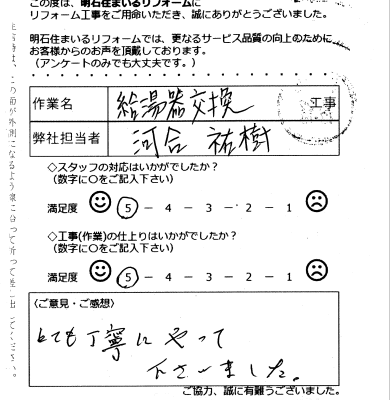 この度は、明石住まいるリフォームに
リフォーム工事をご用命いただき、誠にありがとうございました。
明石住まいるリフォームでは、更なるサービス品質の向上のために
お客様からのお声を頂戴しております。
（アンケートのみでも大丈夫です。）
作業名 給湯器交換 工事
弊社担当者 河合 祐樹
◇スタッフの対応はいかがでしたか？
(数字に〇をご記入下さい)
満足度 5 − 4 − 3 − 2 − 1
◇工事(作業)の仕上りはいかがでしたか？
(数字に〇をご記入下さい)
満足度 5 − 4 − 3 − 2 − 1
〈ご意見・ご感想〉
とても丁寧にやって
下さいました。
ご協力、誠に有難うございました。